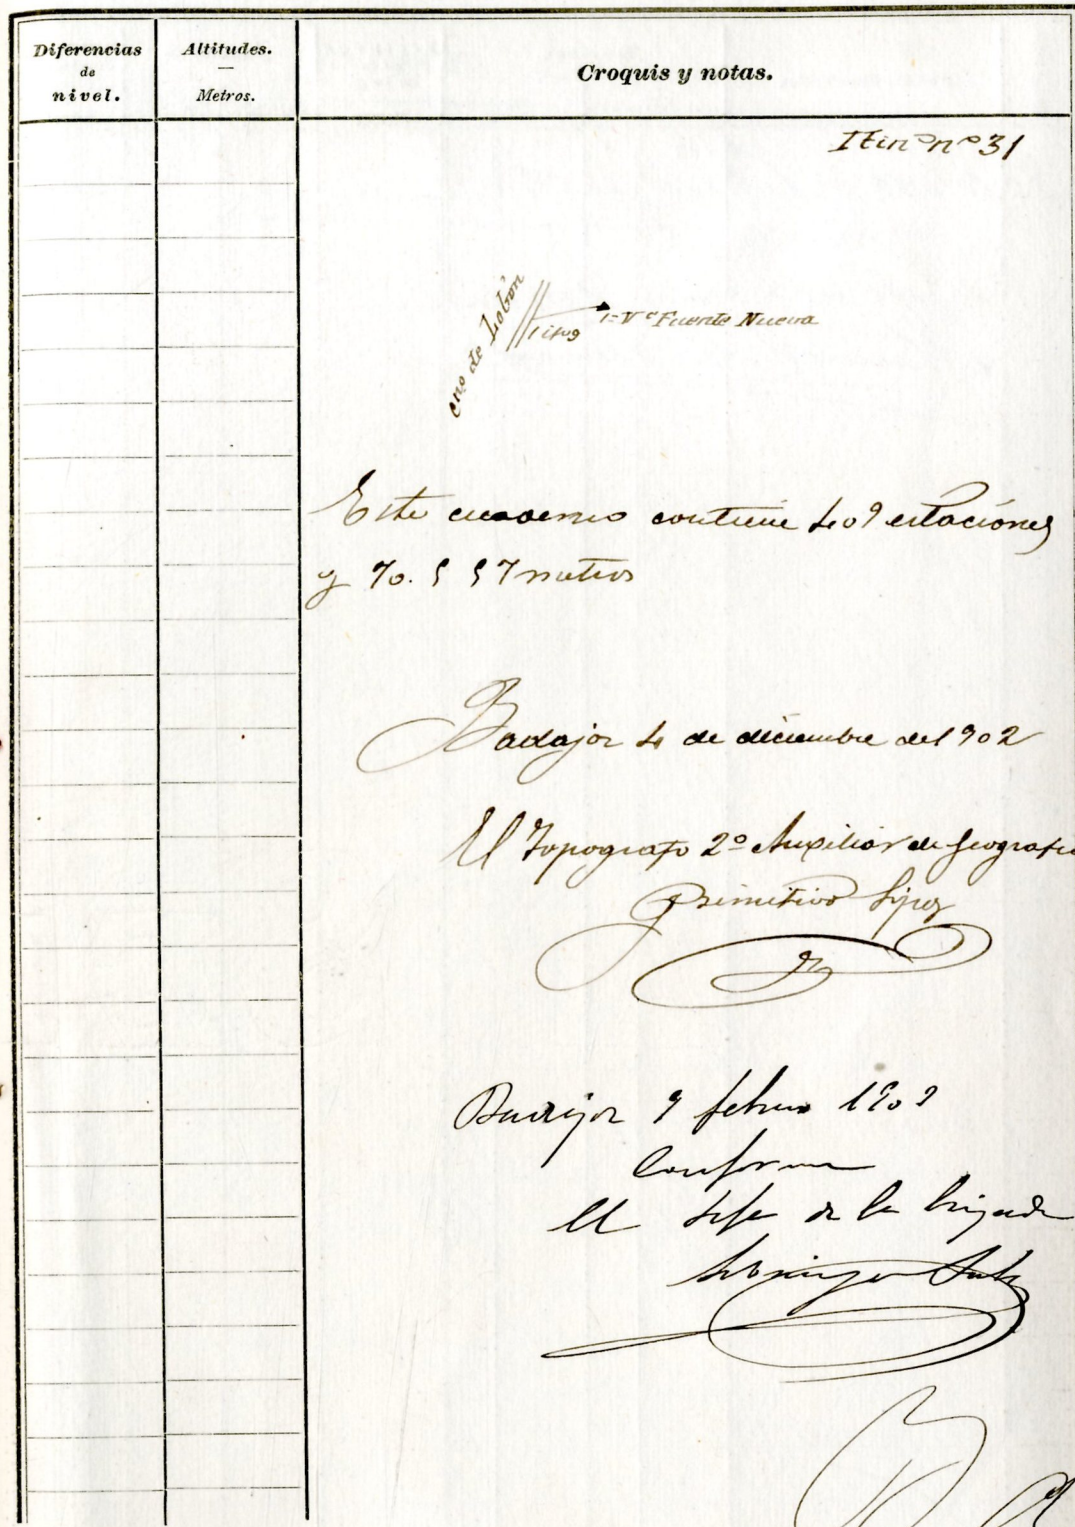 Diferencias
de
nivel.
Altitudes.
Metros.
Croquis y notas.
Itinº nº 31
cnº de Lobón
1=Vº Fuente Nueva
Este cuaderno contiene 409 estaciónes
y 70.557 metros
Badajoz 4 de diciembre de 1902
El Topografo 2º Auxiliar de Geografia
Primitivo López
Badajoz 9 febrero 1903
Conforme
El Jefe de la brigada